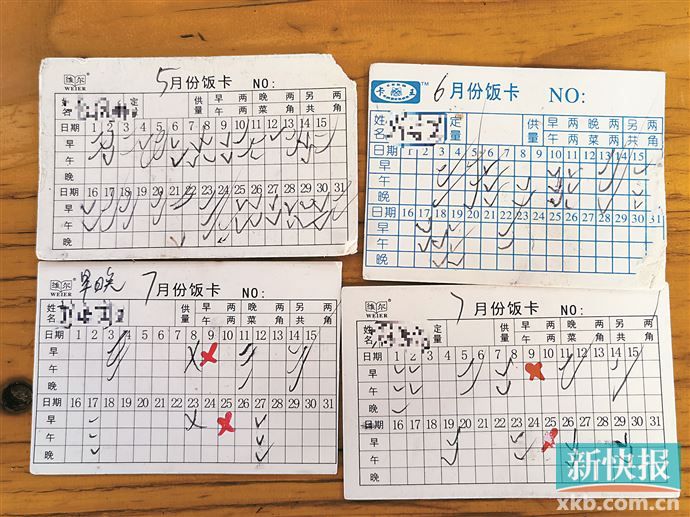 维尔
WEIER
5月份饭卡 NO:
名 定量 供量 早 两 晚 两 另 两
午 两 菜 角 共 角
日期 1 2 3 4 5 6 7 8 9 10 11 12 13 14 15
早
午
晚
日期 16 17 18 19 20 21 22 23 24 25 26 27 28 29 30 31
早
午
晚
卡王 TM
6月份饭卡 NO:
姓名 定量 供量 早 两 晚 两 另 两
午 两 菜 两 共 角
日期 1 2 3 4 5 6 7 8 9 10 11 12 13 14 15
早
午
晚
日期 16 17 18 19 20 21 22 23 24 25 26 27 28 29 30 31
早
午
晚
维尔
WEIER
早晚
7月份饭卡 NO:
姓名 供量 早 两 晚 两 另 两
午 两 菜 角 共 角
日期 1 2 3 4 5 6 7 8 9 10 11 12 13 14 15
早
午
晚
日期 16 17 18 19 20 21 22 23 24 25 26 27 28 29 30 31
早
午
晚
维尔
WEIER
7月份饭卡 NO:
姓名 定量 供量 早 两 晚 两 另 两
午 两 菜 角 共 角
日期 1 2 3 4 5 6 7 8 9 10 11 12 13 14 15
早
午
晚
日期 16 17 18 19 20 21 22 23 24 25 26 27 28 29 30 31
早
午
晚
新快报
xkb.com.cn